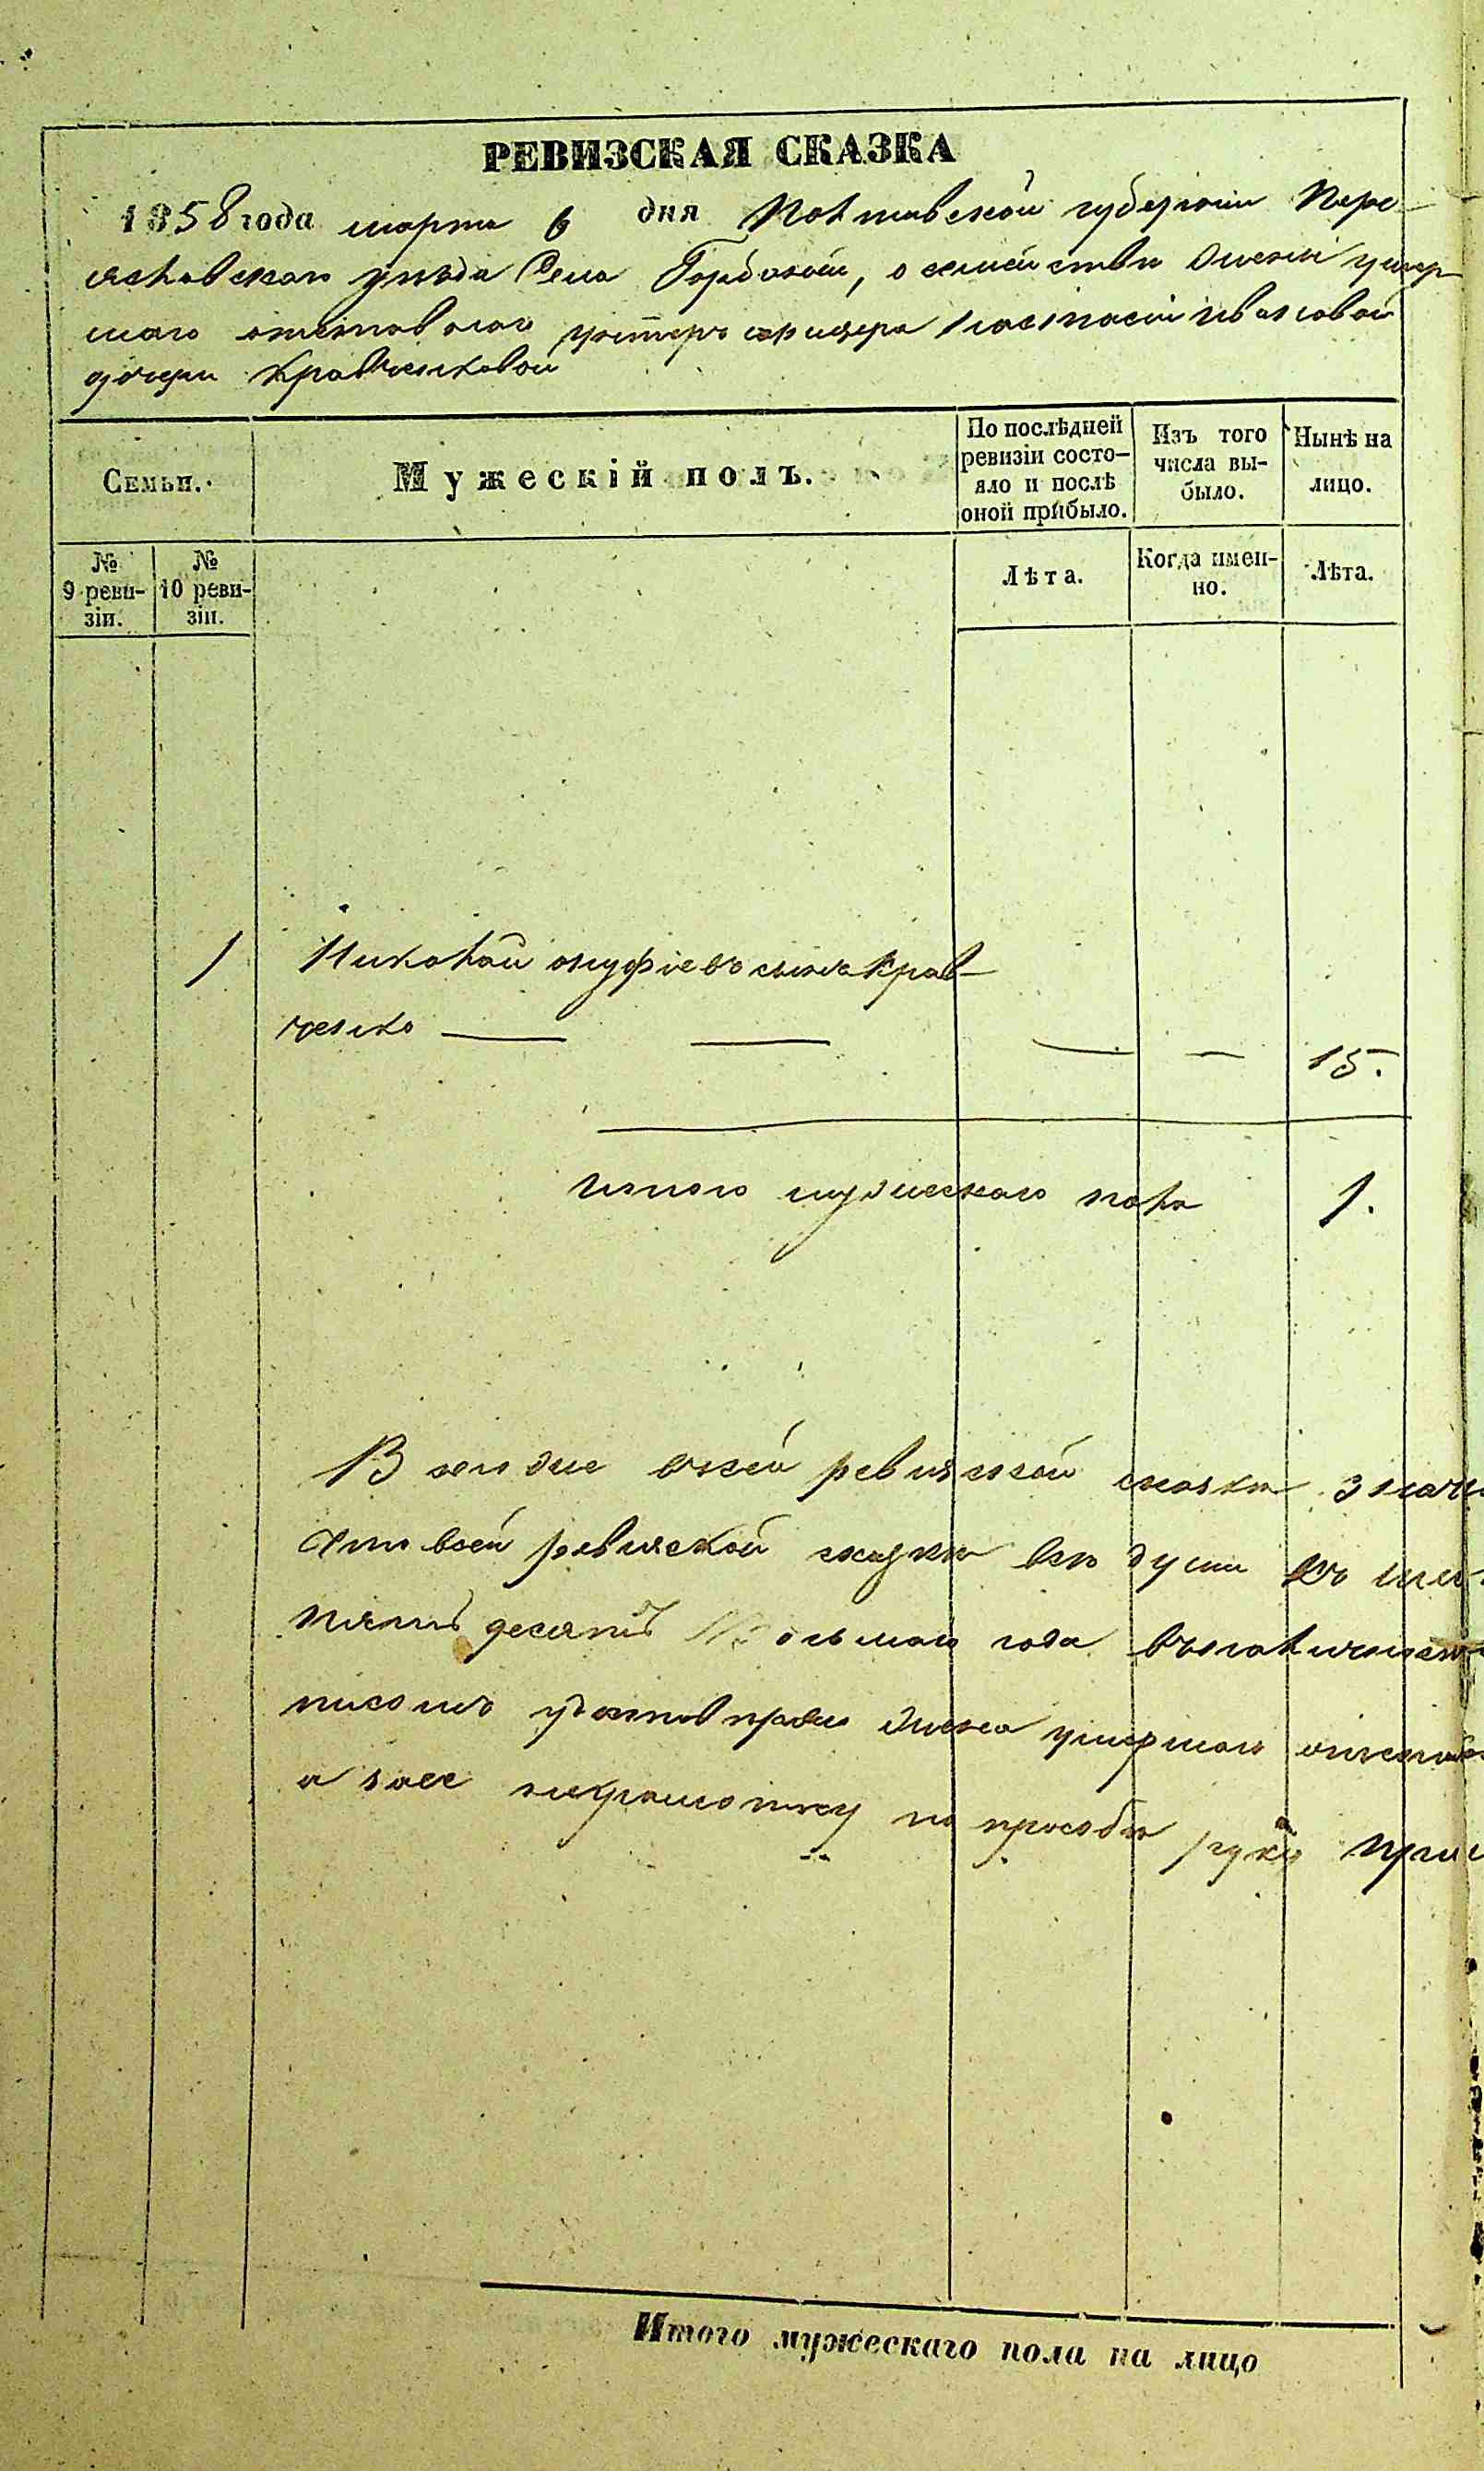 РЕВИЗСКАЯ СКАЗКА
1858 года марта 6 дня Полтавской губернии Пере-
яславскаго уезда Села Горбаней, о семействе жены умер-
шаго отставнаго унтеръ офицера Настасии Ивановой
дочери Кравченковой
Семьи.
Мужескій полъ.
По послѣдней ревизіи состо-
яло и послѣ оной прибыло.
Изъ того числа вы-
было.
Нынѣ на лицо.
№ 9 реви-
зіи.
№ 10 реви-
зіи.
Лѣта.
Когда имен-
но.
Лѣта.
1 Николай онуфріевъ сынъ Крав-
ченко — — — — 15.
Итого мужескаго пола 1.
ревизской сказки
Что всей ревизской сказки все души
пять десять осьмаго года
жена умершаго
а за нее неграмотную по прозбе руку
Итого мужескаго пола на лицо